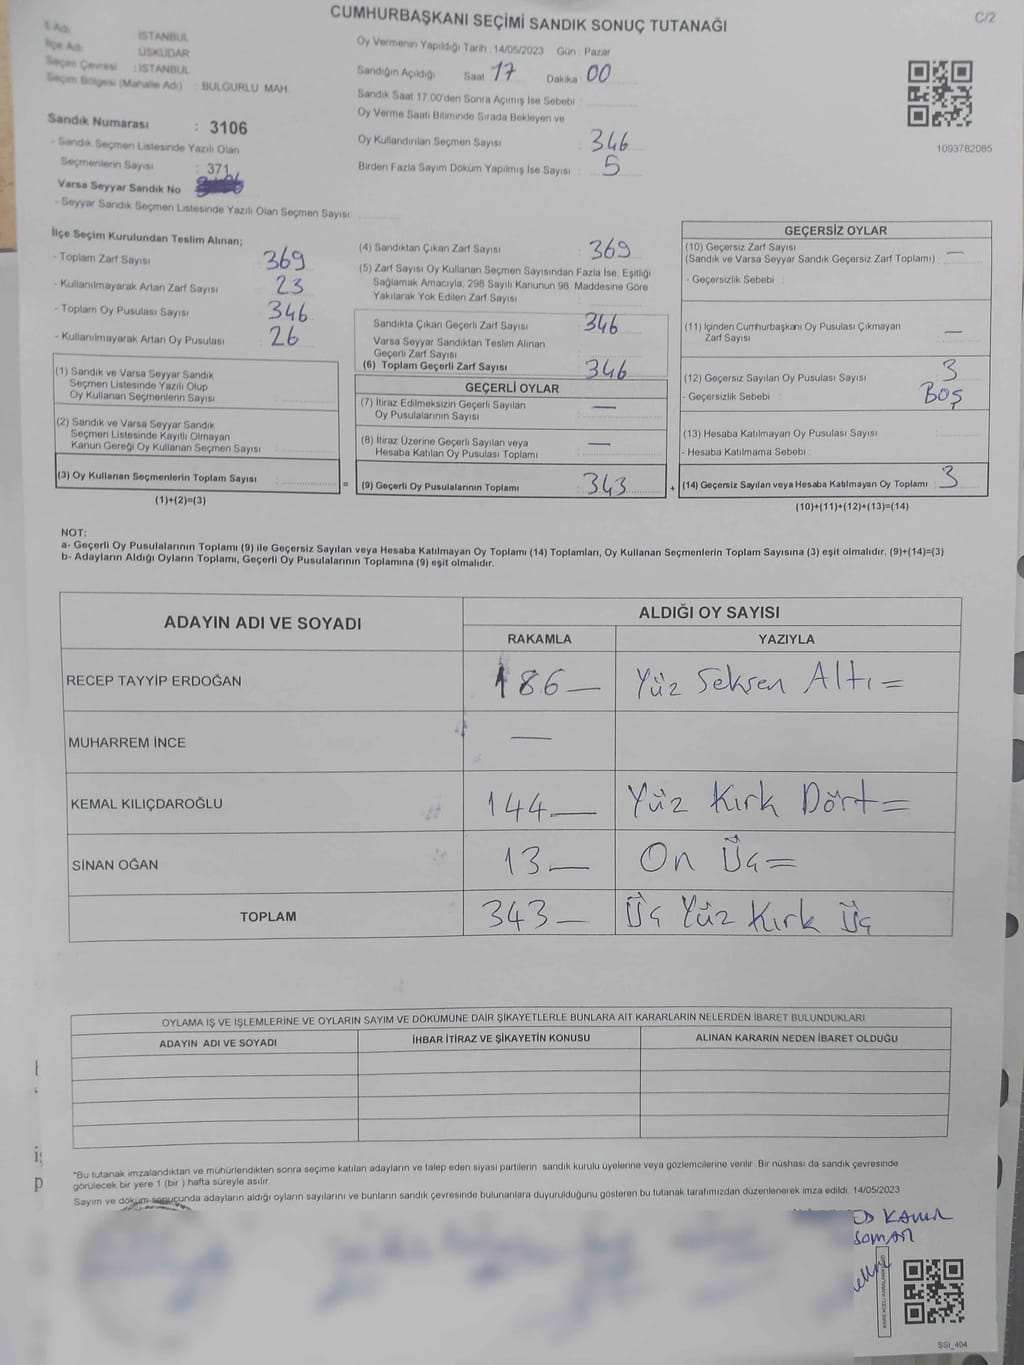 CUMHURBAŞKANI SEÇİMİ SANDIK SONUÇ TUTANAĞI
C/2
İl Adı : İSTANBUL
İlçe Adı : ÜSKÜDAR
Seçim Çevresi : İSTANBUL
Seçim Bölgesi (Mahalle Adı) : BULGURLU MAH.
Sandık Numarası : 3106
- Sandık Seçmen Listesinde Yazılı Olan
Seçmenlerin Sayısı : 371
Varsa Seyyar Sandık No
- Seyyar Sandık Seçmen Listesinde Yazılı Olan Seçmen Sayısı
Oy Vermenin Yapıldığı Tarih : 14/05/2023 Gün : Pazar
Sandığın Açıldığı Saat 17 Dakika 00
Sandık Saat 17:00'den Sonra Açımış İse Sebebi :
Oy Verme Saati Bitiminde Sırada Bekleyen ve
Oy Kullandırılan Seçmen Sayısı : 346
Birden Fazla Sayım Döküm Yapılmış İse Sayısı : 5
1093782085
İlçe Seçim Kurulundan Teslim Alınan;
- Toplam Zarf Sayısı 369
- Kullanılmayarak Artan Zarf Sayısı 23
- Toplam Oy Pusulası Sayısı 346
- Kullanılmayarak Artan Oy Pusulası 26
(1) Sandık ve Varsa Seyyar Sandık
Seçmen Listesinde Yazılı Olup
Oy Kullanan Seçmenlerin Sayısı
(2) Sandık ve Varsa Seyyar Sandık
Seçmen Listesinde Kayıtlı Olmayan
Kanun Gereği Oy Kullanan Seçmen Sayısı :
(3) Oy Kullanan Seçmenlerin Toplam Sayısı :
(1)+(2)=(3)
=
(4) Sandıktan Çıkan Zarf Sayısı : 369
(5) Zarf Sayısı Oy Kullanan Seçmen Sayısından Fazla İse, Eşitliği
Sağlamak Amacıyla, 298 Sayılı Kanunun 98. Maddesine Göre
Yakılarak Yok Edilen Zarf Sayısı
Sandıkta Çıkan Geçerli Zarf Sayısı 346
Varsa Seyyar Sandıktan Teslim Alınan
Geçerli Zarf Sayısı
(6) Toplam Geçerli Zarf Sayısı 346
GEÇERLİ OYLAR
(7) İtiraz Edilmeksizin Geçerli Sayılan —
Oy Pusulalarının Sayısı
(8) İtiraz Üzerine Geçerli Sayılan veya —
Hesaba Katılan Oy Pusulası Toplamı
(9) Geçerli Oy Pusulalarının Toplamı : 343
+
GEÇERSİZ OYLAR
(10) Geçersiz Zarf Sayısı —
(Sandık ve Varsa Seyyar Sandık Geçersiz Zarf Toplamı) :
- Geçersizlik Sebebi :
(11) İçinden Cumhurbaşkanı Oy Pusulası Çıkmayan —
Zarf Sayısı
(12) Geçersiz Sayılan Oy Pusulası Sayısı 3
- Geçersizlik Sebebi : BOŞ
(13) Hesaba Katılmayan Oy Pusulası Sayısı
- Hesaba Katılmama Sebebi :
(14) Geçersiz Sayılan veya Hesaba Katılmayan Oy Toplamı : 3
(10)+(11)+(12)+(13)=(14)
NOT:
a- Geçerli Oy Pusulalarının Toplamı (9) ile Geçersiz Sayılan veya Hesaba Katılmayan Oy Toplamı (14) Toplamları, Oy Kullanan Seçmenlerin Toplam Sayısına (3) eşit olmalıdır. (9)+(14)=(3)
b- Adayların Aldığı Oyların Toplamı, Geçerli Oy Pusulalarının Toplamına (9) eşit olmalıdır.
ADAYIN ADI VE SOYADI
ALDIĞI OY SAYISI
RAKAMLA YAZIYLA
RECEP TAYYİP ERDOĞAN 186— Yüz Seksen Altı =
MUHARREM İNCE —
KEMAL KILIÇDAROĞLU 144— Yüz Kırk Dört =
SİNAN OĞAN 13— On Üç =
TOPLAM 343— Üç Yüz Kırk Üç
OYLAMA İŞ VE İŞLEMLERİNE VE OYLARIN SAYIM VE DÖKÜMÜNE DAİR ŞİKAYETLERLE BUNLARA AİT KARARLARIN NELERDEN İBARET BULUNDUKLARI
ADAYIN ADI VE SOYADI İHBAR İTİRAZ VE ŞİKAYETİN KONUSU ALINAN KARARIN NEDEN İBARET OLDUĞU
*Bu tutanak imzalandıktan ve mühürlendikten sonra seçime katılan adayların ve talep eden siyasi partilerin sandık kurulu üyelerine veya gözlemcilerine verilir. Bir nüshası da sandık çevresinde
görülecek bir yere 1 (bir) hafta süreyle asılır.
Sayım ve döküm sonucunda adayların aldığı oyların sayılarını ve bunların sandık çevresinde bulunanlara duyurulduğunu gösteren bu tutanak tarafımızdan düzenlenerek imza edildi. 14/05/2023
SSI_404